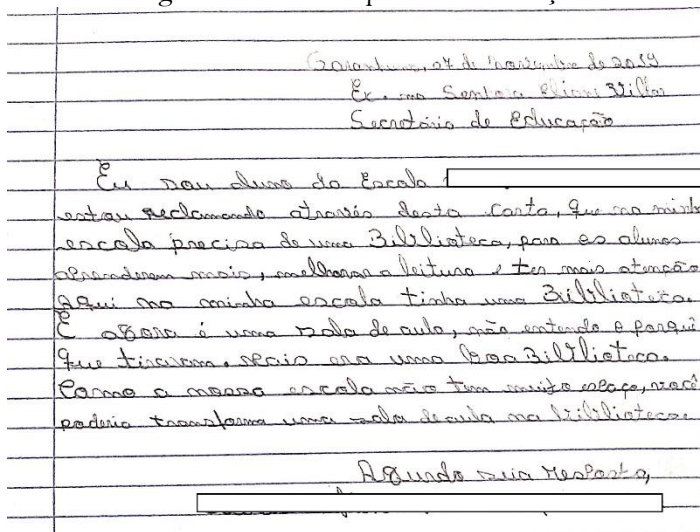 Garanhuns, 07 de novembro de 2019
Ex. mo Senhora Eliane Vilar
Secretário de Educação
Eu sou aluno da Escola
estou reclamando através desta carta, que na minha
escola precisa de uma Biblioteca, para os alunos
aprenderem mais, melhorar a leitura e ter mais atenção
aqui na minha escola tinha uma Biblioteca.
E agora é uma sala de aula, não entendo o porquê
que tiraram. Mais era uma boa Biblioteca.
Como a nossa escola não tem muito espaço, você
poderia transforma uma sala de aula na biblioteca.
Aguardo sua resposta,